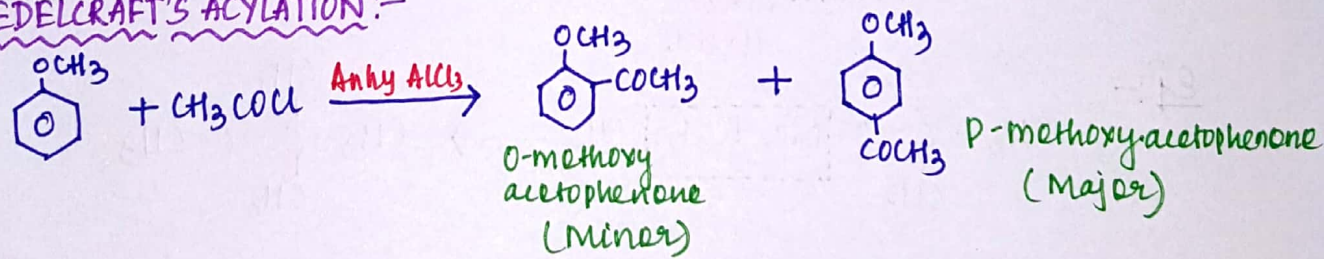 EDELCRAFT'S ACYLATION:-
OCH3
+ CH3COCl
Anhy AlCl3
OCH3
-COCH3
O-methoxy
acetophenone
(Minor)
+
OCH3
COCH3
P-methoxy-acetophenone
(Major)